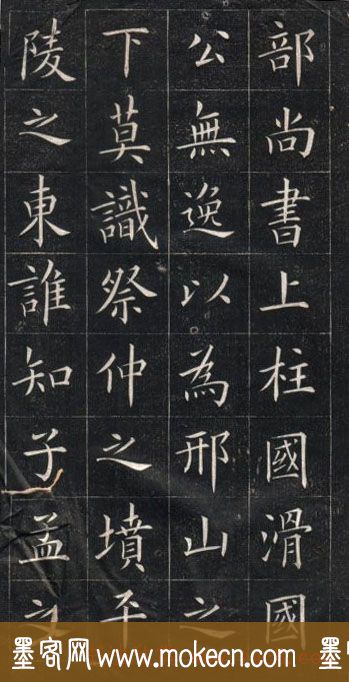 部尚書上柱國滑國
公無逸以為邢山之
下莫識祭仲之墳平
陵之東誰知子孟之
墨客网 www.mokecn.com 墨